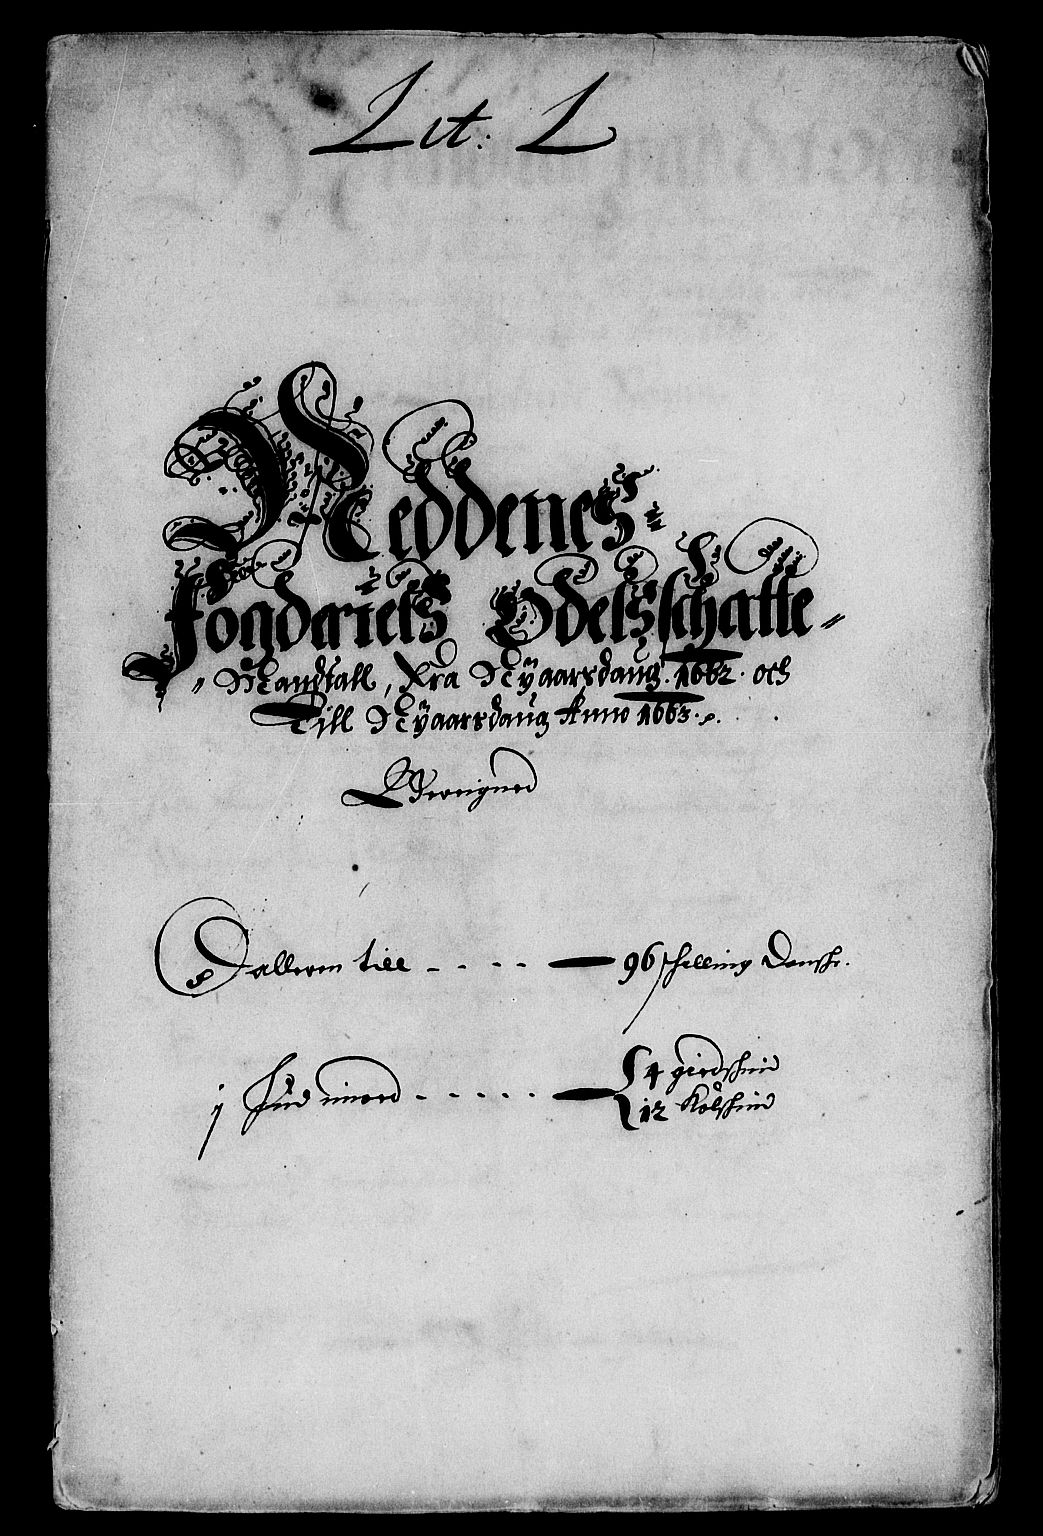 Lit: L
Neddenes=
Fogderiets Odelsschatte=
Mandtall, Fra Nÿaarsdaug. 1662. och
Till Nÿaarsdaug Anno 1663.
Beregned
Dalleren till - - - - 96 schelling Danske.
j Hud imod - - - - - - 4 giedskind
12 Kalskind